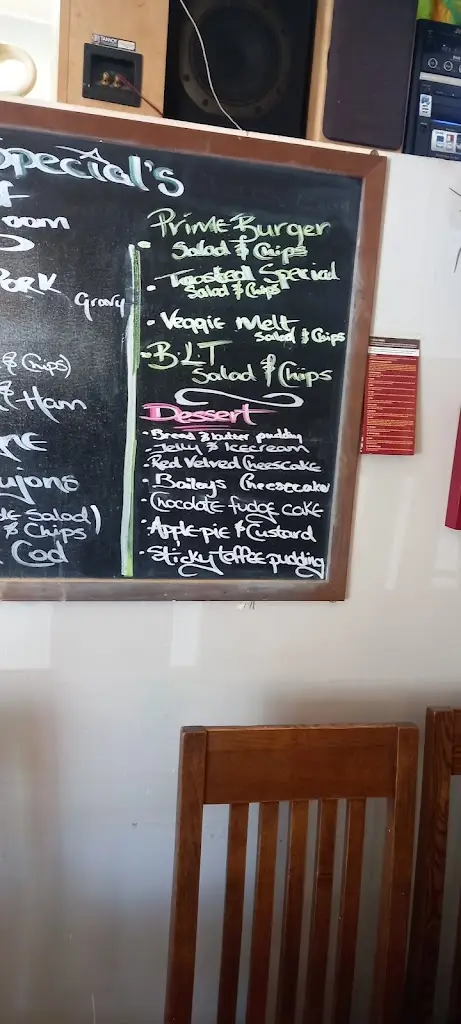 Special's
Pork
Gravy
& Chips)
& Ham
Salad)
& Chips
Cod
Prime Burger
Salad & Chips
Toasted Special
Salad & Chips
Veggie Melt
Salad & Chips
B.L.T
Salad & Chips
Dessert
Bread & butter pudding
Jelly & Icecream
Red Velved Cheesecake
Baileys Cheesecake
Chocolate fudge cake
Apple pie & Custard
Sticky toffee pudding